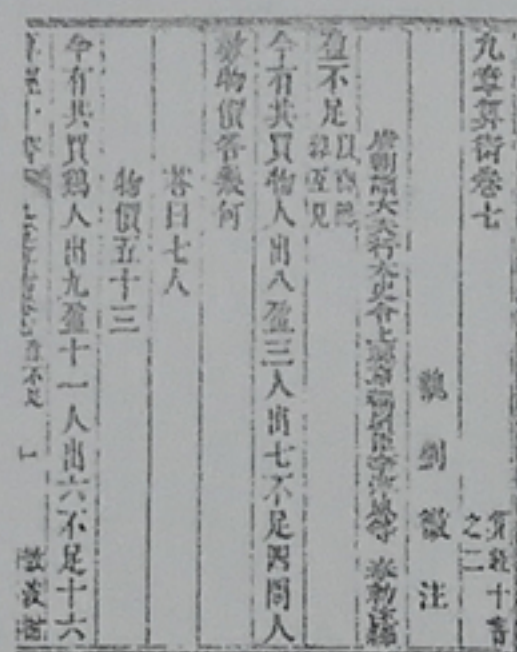 九章算術卷七
算經十書之二
魏劉徽注
唐朝議大夫行太史令上輕車都尉臣李淳風等奉勅注釋
盈不足以御隱雜互見
今有共買物人出八盈三人出七不足四問人
數物價各幾何
荅曰七人
物價五十三
今有共買鷄人出九盈十一人出六不足十六